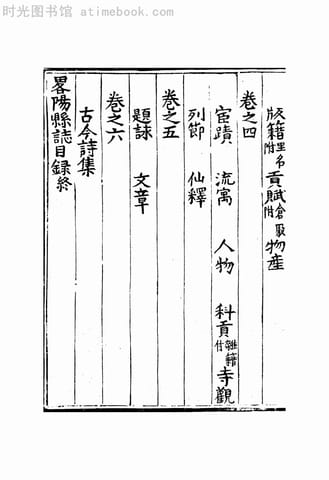 时光图书馆 - atimebook.com
版籍里名附貢賦倉厫附物産
卷之四
宦蹟 流寓 人物 科貢雜籍付寺觀
列節 仙釋
卷之五
題詠 文章
卷之六
古今詩集
畧陽縣誌目録終